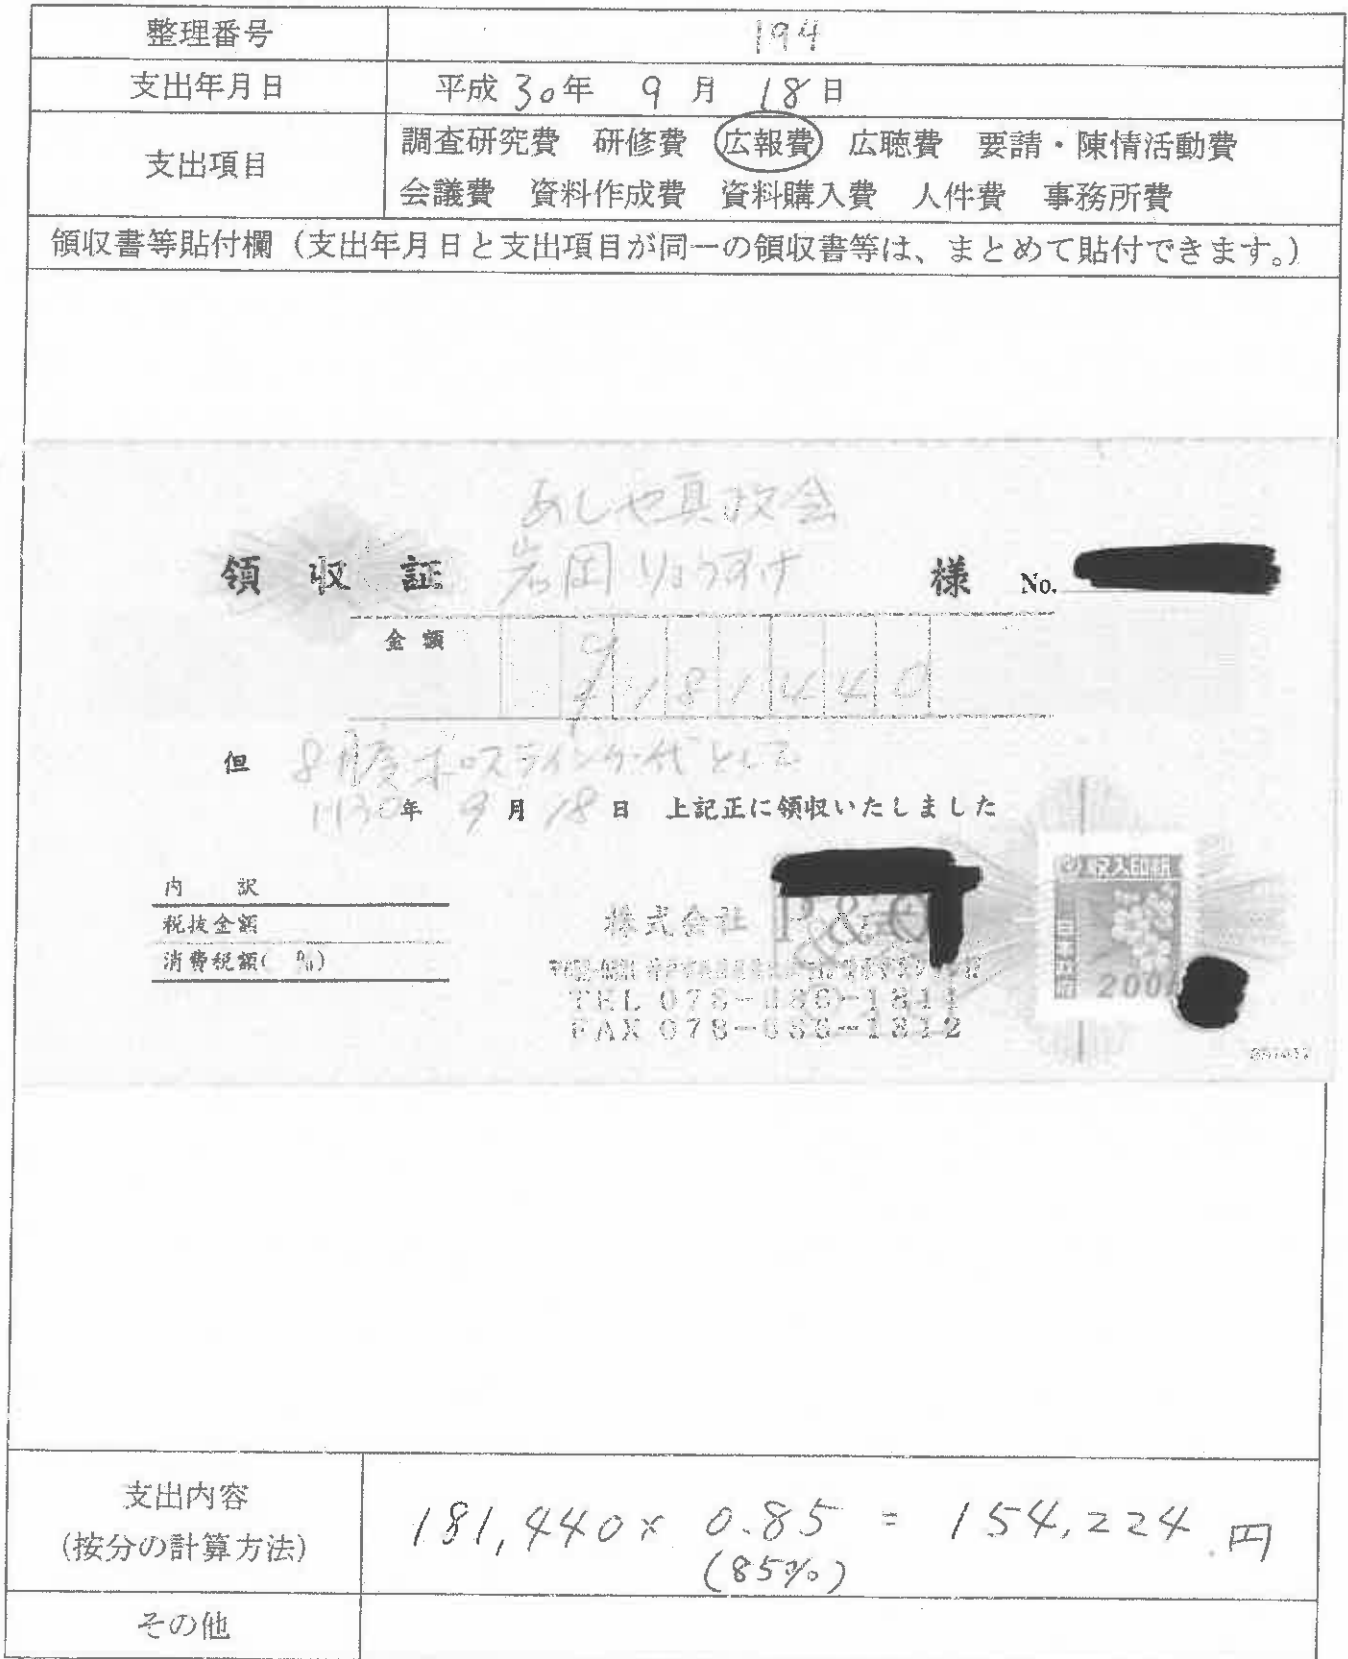 整理番号 194
支出年月日 平成30年 9月 18日
支出項目 調査研究費 研修費 広報費 広聴費 要請・陳情活動費
会議費 資料作成費 資料購入費 人件費 事務所費
領収書等貼付欄（支出年月日と支出項目が同一の領収書等は、まとめて貼付できます。）
あしや真政会
領収証 岩岡りょうすけ 様 No.
金額 181440
但 8月度ポスティング代として
H30年 9月 18日 上記正に領収いたしました
内訳
税抜金額
消費税額( %)
株式会社
収入印紙
200
TEL 078-
FAX 078-
支出内容
(按分の計算方法)
181,440× 0.85 = 154,224円
(85%)
その他